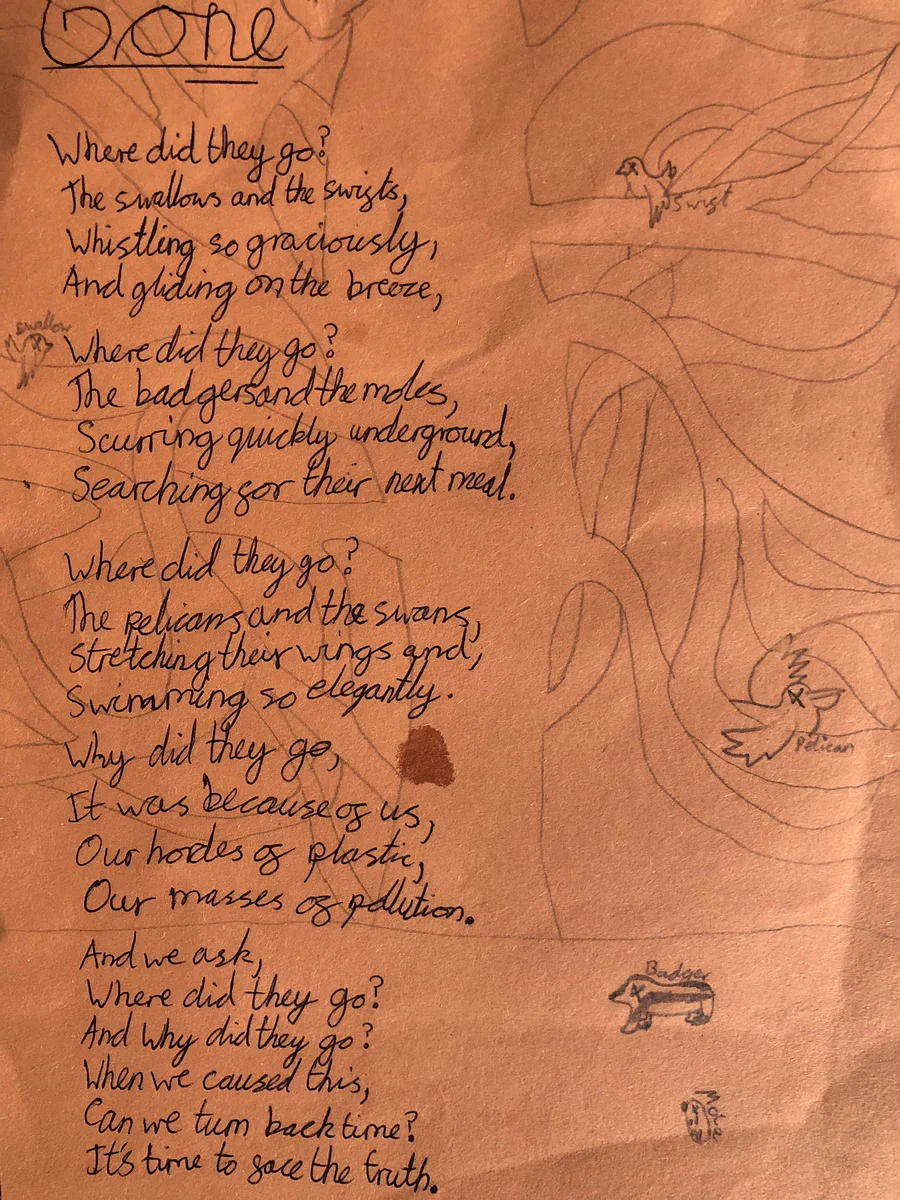 Gone
Where did they go?
The swallows and the swifts,
Swift
Whistling so graciously,
And gliding on the breeze,
Swallow
Where did they go?
The badgers and the moles,
Scurring quickly underground,
Searching for their next meal.
Where did they go?
The pelicans and the swans,
Stretching their wings and,
Swimming so elegantly.
Pelican
Why did they go,
It was because of us,
Our hordes of plastic,
Our masses of pollution.
And we ask,
Where did they go?
Badger
And Why did they go?
When we caused this,
Can we turn back time?
Mole
It's time to face the truth.